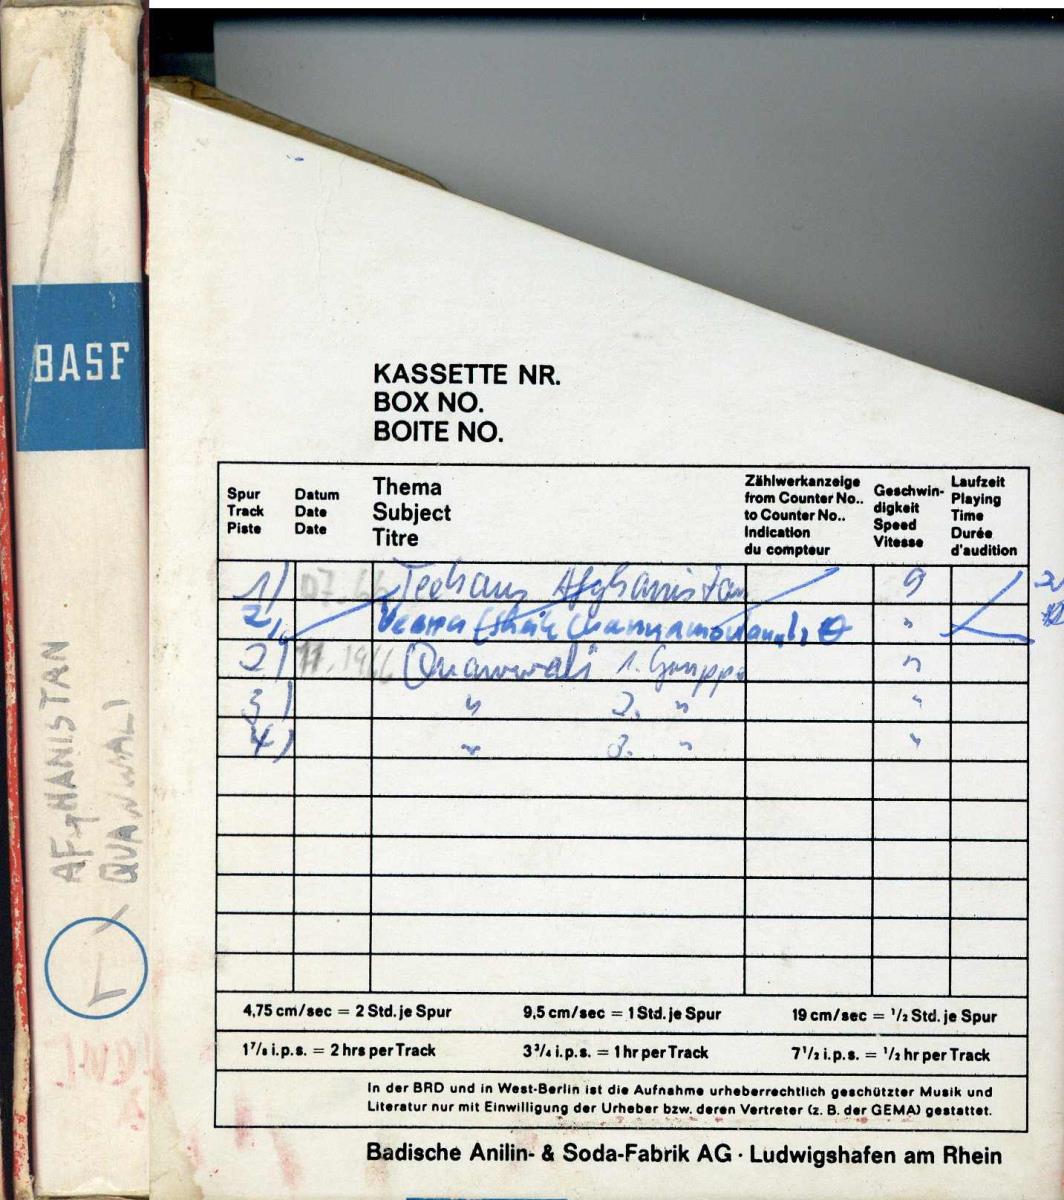 BASF
AFGHANISTAN
QUAWWALI
KASSETTE NR.
BOX NO.
BOITE NO.
Spur
Track
Piste
Datum
Date
Date
Thema
Subject
Titre
Zählwerkanzeige
from Counter No..
to Counter No..
Indication
du compteur
Geschwin-
digkeit
Speed
Vitesse
Laufzeit
Playing
Time
Durée
d'audition
1) 07.66 Teehaus Afghanistan 9
2) "
2) 11.1966 Quawwali 1. Gruppe "
3) " 2. " "
4) " 3. " "
4,75 cm/sec = 2 Std. je Spur 9,5 cm/sec = 1 Std. je Spur 19 cm/sec = 1/2 Std. je Spur
1 7/8 i.p.s. = 2 hrs per Track 3 3/4 i.p.s. = 1 hr per Track 7 1/2 i.p.s. = 1/2 hr per Track
In der BRD und in West-Berlin ist die Aufnahme urheberrechtlich geschützter Musik und
Literatur nur mit Einwilligung der Urheber bzw. deren Vertreter (z. B. der GEMA) gestattet.
Badische Anilin- & Soda-Fabrik AG · Ludwigshafen am Rhein